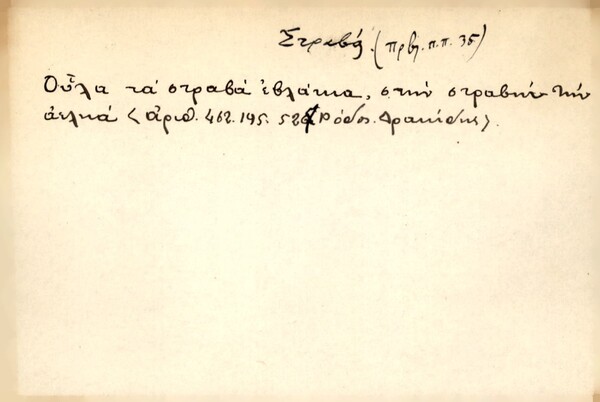 Στραβός (πρβλ. π.π. 35)
Οὖλα τὰ στραβὰ ἐβλάκια, στὴν στραβὴν τὴν
ἀελιά <ἀριθ. 462. 195. 526 Ρόδος. Δρακίδης>.